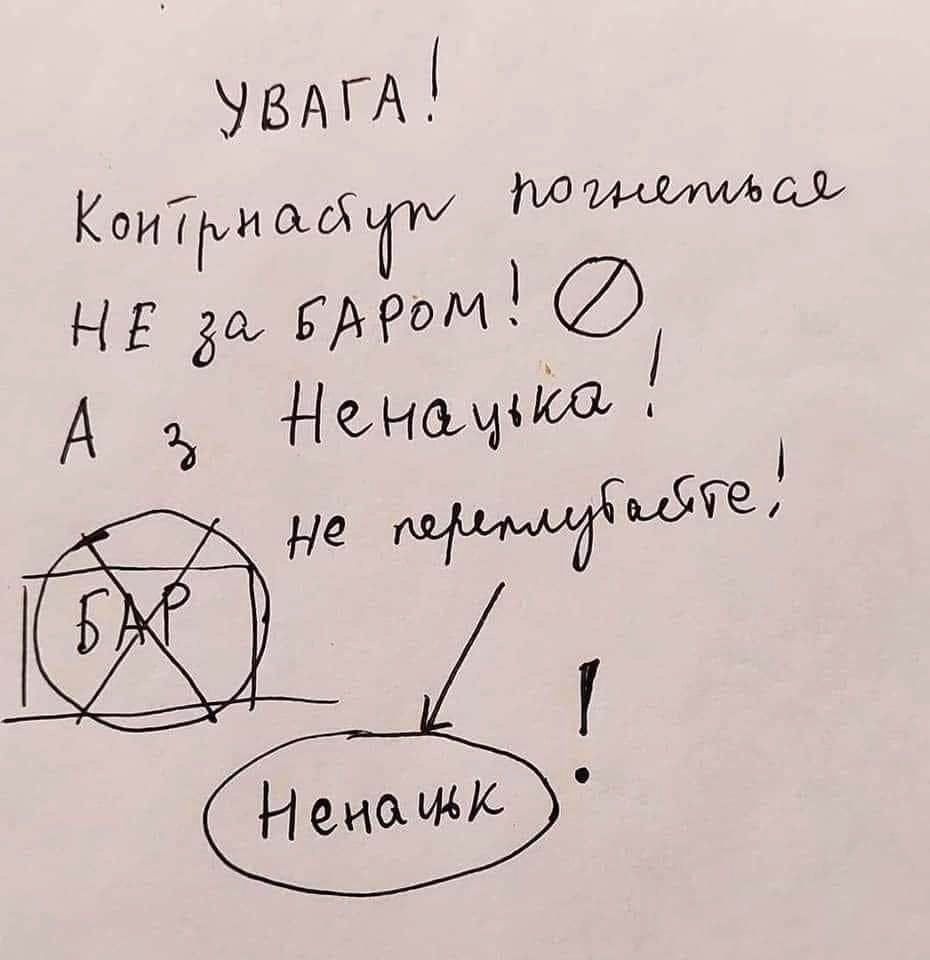 УВАГА!
Контрнаступ почнеться
НЕ за БАРОМ!
А з Ненацька!
не переплутайте!
БАР
Ненацьк !